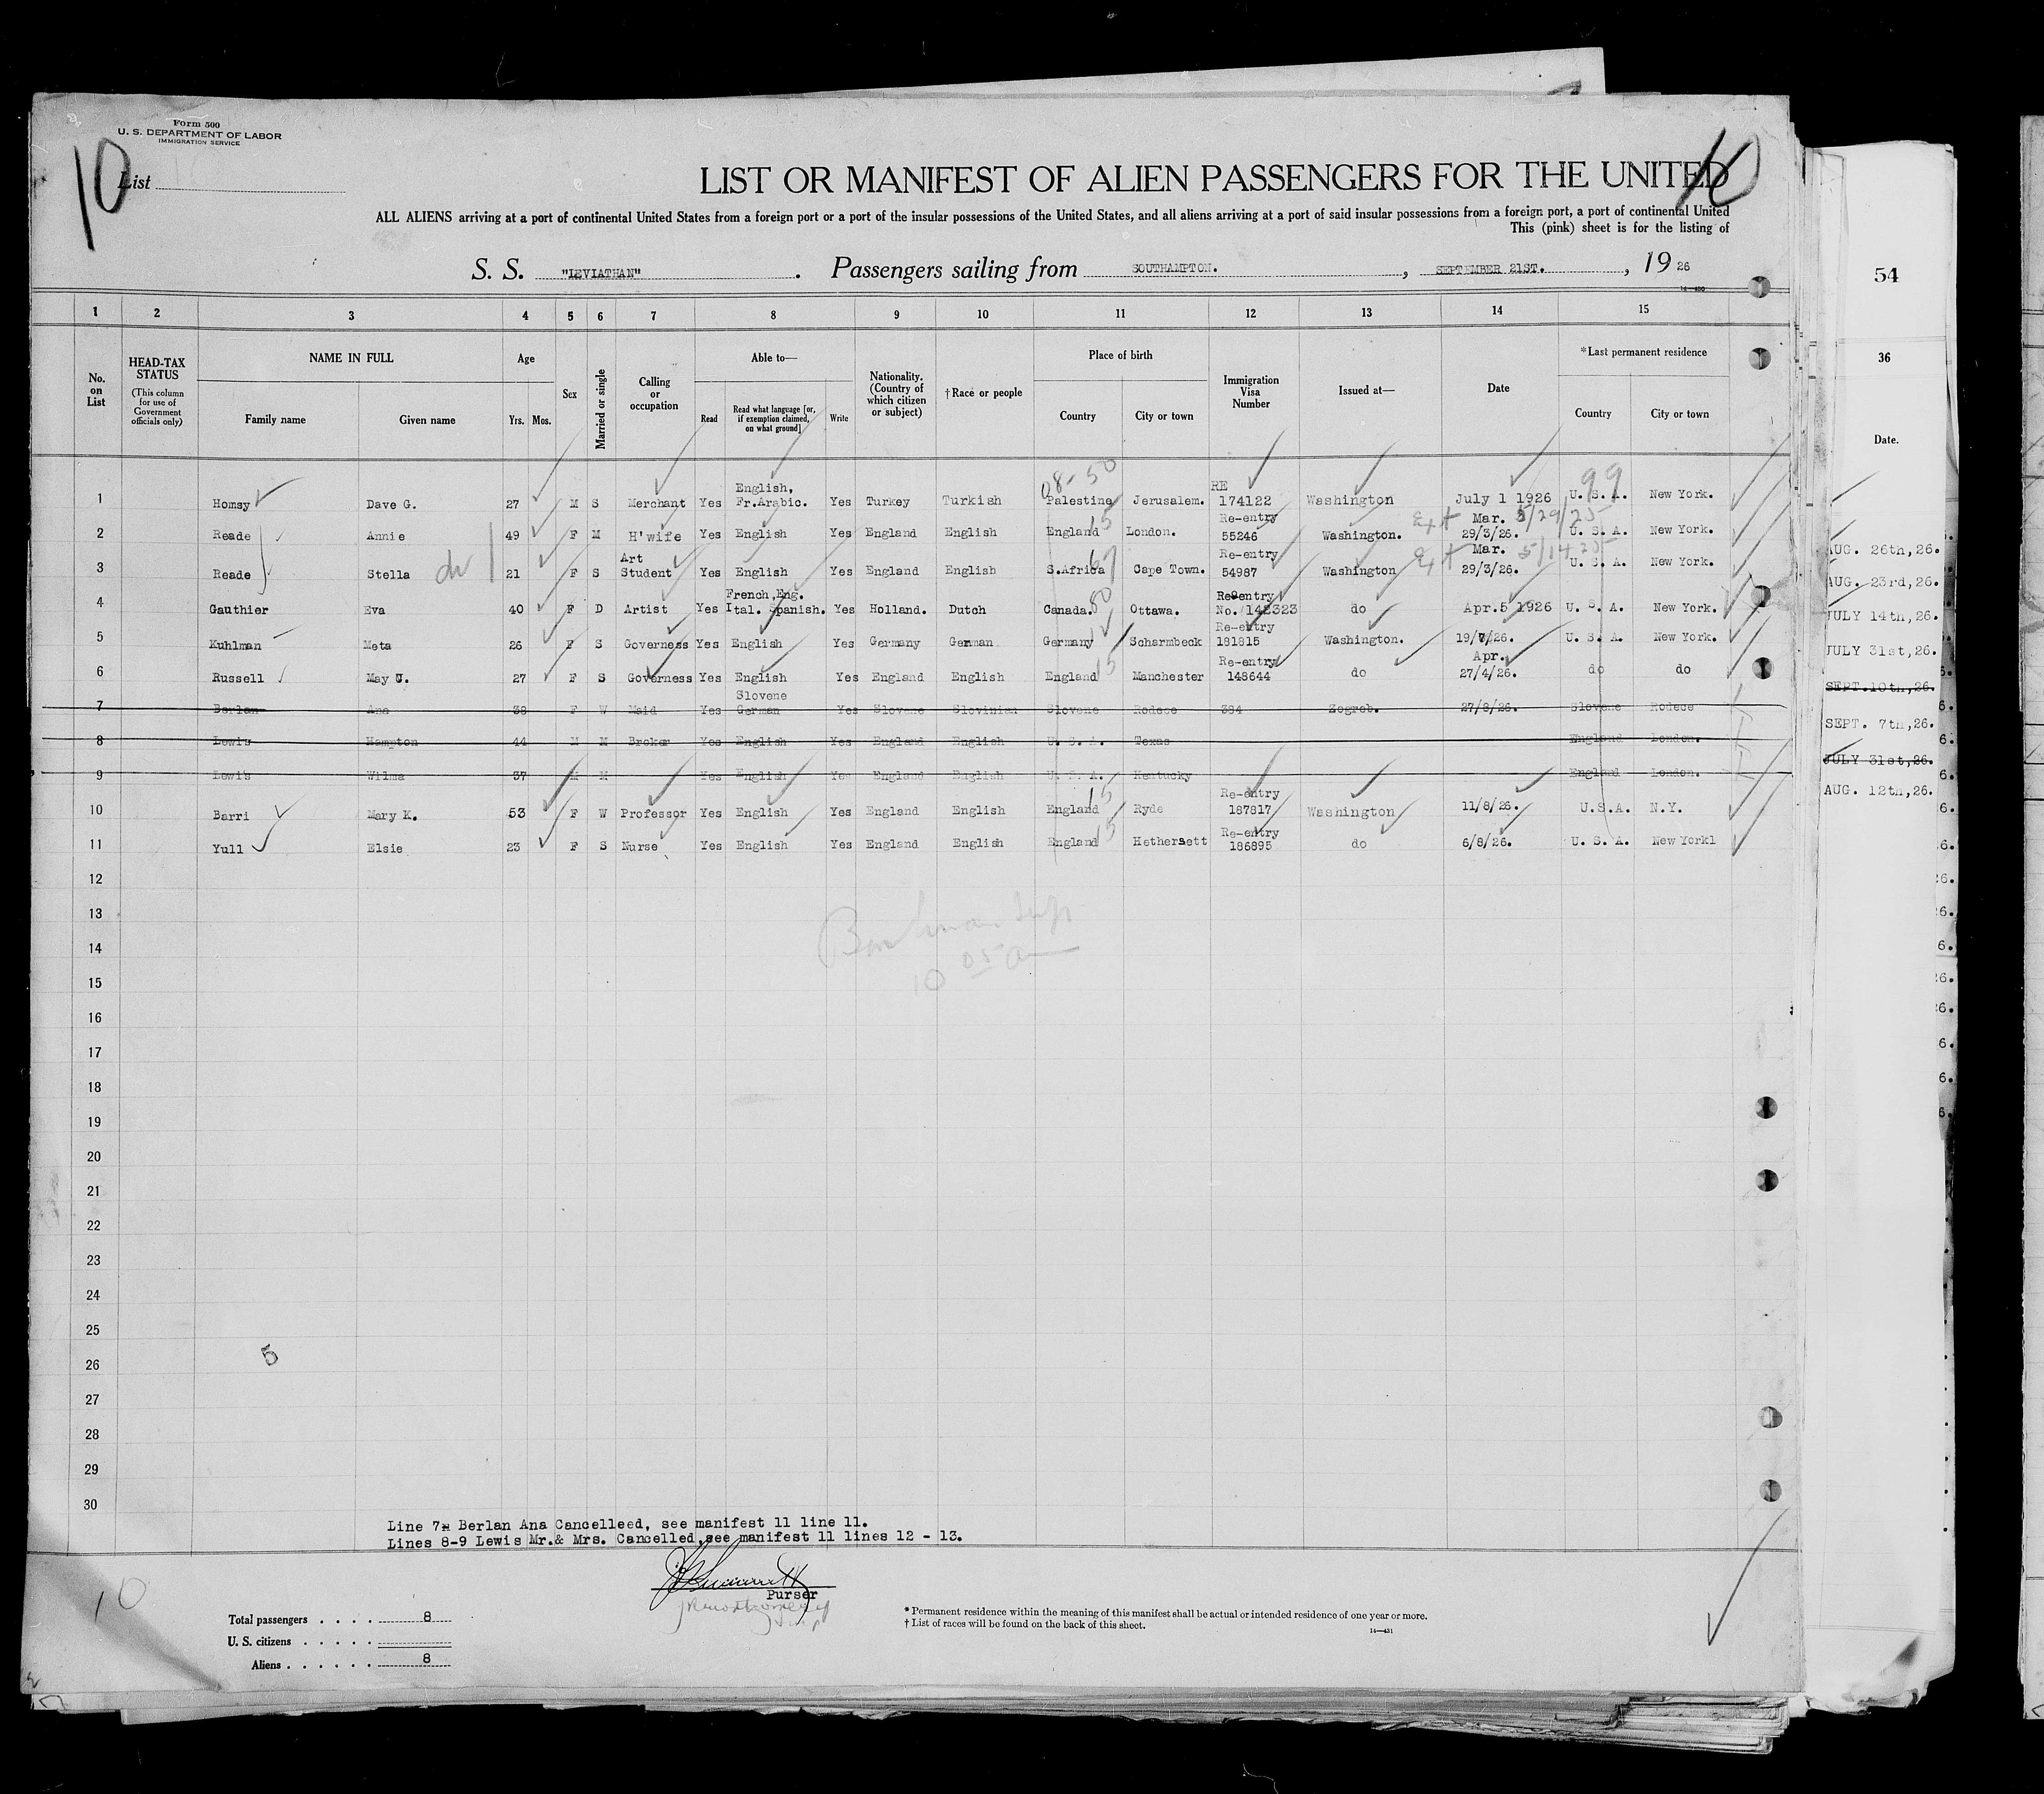 Form 500
U. S. DEPARTMENT OF LABOR
IMMIGRATION SERVICE
10 10
List
LIST OR MANIFEST OF ALIEN PASSENGERS FOR THE UNITED
ALL ALIENS arriving at a port of continental United States from a foreign port or a port of the insular possessions of the United States, and all aliens arriving at a port of said insular possessions from a foreign port, a port of continental United
This (pink) sheet is for the listing of
S. S. "LEVIATHAN" . Passengers sailing from SOUTHAMPTON. , SEPTEMBER 21ST. , 19 26
1 2 3 4 5 6 7 8 9 10 11 12 13 14 15
No. on List
HEAD-TAX STATUS (This column for use of Government officials only)
NAME IN FULL
Family name Given name
Age
Yrs. Mos.
Sex
Married or single
Calling or occupation
Able to—
Read Read what language [or, if exemption claimed, on what ground] Write
Nationality. (Country of which citizen or subject)
†Race or people
Place of birth
Country City or town
Immigration Visa Number
Issued at—
Date
*Last permanent residence
Country City or town
08-50 99
1 Homsy Dave G. 27 M S Merchant Yes English, Fr.Arabic. Yes Turkey Turkish Palestine Jerusalem. RE 174122 Washington July 1 1926 U. S. A. New York.
2 Reade Annie 49 F M H'wife Yes English Yes England English England 15 London. Re-entry 55246 Washington. Ext Mar. 29/3/26. U. S. A. New York.
3 Reade Stella 21 F S Art Student Yes English Yes England English S.Africa Cape Town. Re-entry 54987 Washington Ext Mar. 29/3/26. U. S. A. New York.
4 Gauthier Eva 40 F D Artist Yes French,Eng. Ital. Spanish. Yes Holland. Dutch Canada. 80 Ottawa. Reentry No. 142323 do Apr.5 1926 U. S. A. New York.
5 Kuhlman Meta 26 F S Governess Yes English Yes Germany German Germany Scharmbeck Re-entry 181815 Washington. 19/7/26. U. S. A. New York.
6 Russell May U. 27 F S Governess Yes English Yes England English England 15 Manchester Re-entry 148644 do Apr. 27/4/26. do do
7 Berlan Ana 38 F W Maid Yes Slovene German Yes Slovene Slovinian Slovene Rodece 394 Zogreb. 27/8/26. Slovene Rodece
8 Lewis Hampton 44 M M Broker Yes English Yes England English U. S. A. Texas England London.
9 Lewis Wilma 37 M Yes English Yes England English U. S. A. Kentucky England London.
10 Barri Mary K. 53 F W Professor Yes English Yes England English England 15 Ryde Re-entry 187817 Washington 11/8/26. U.S.A. N.Y.
11 Yull Elsie 23 F S Nurse Yes English Yes England English England 15 Hethersett Re-entry 186895 do 6/8/26. U. S. A. New Yorkl
12
13
14
15
16
17
18
19
20
21
22
23
24
25
5
26
27
28
29
30
Line 7 Berlan Ana Cancelleed, see manifest 11 line 11.
Lines 8-9 Lewis Mr.& Mrs. Cancelled,see manifest 11 lines 12 - 13.
Purser
10
Total passengers . . . . 8
U. S. citizens . . . . .
Aliens . . . . . . 8
* Permanent residence within the meaning of this manifest shall be actual or intended residence of one year or more.
† List of races will be found on the back of this sheet.
14—431
54
36
Date.
AUG. 26th,26.
AUG. 23rd,26.
JULY 14th,26.
JULY 31st,26.
SEPT.10th,26.
SEPT. 7th,26.
JULY 31st,26.
AUG. 12th,26.